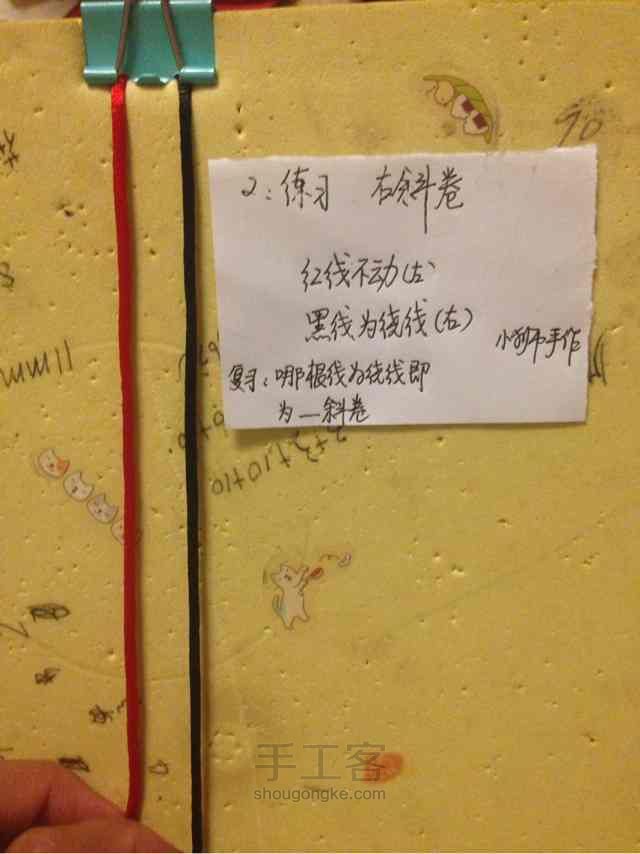 2：练习 右斜卷
红线不动(左)
黑线为绕线(右)
复习：哪根线为绕线即
为一斜卷
手作
90
10+10
手工客
shougongke.com